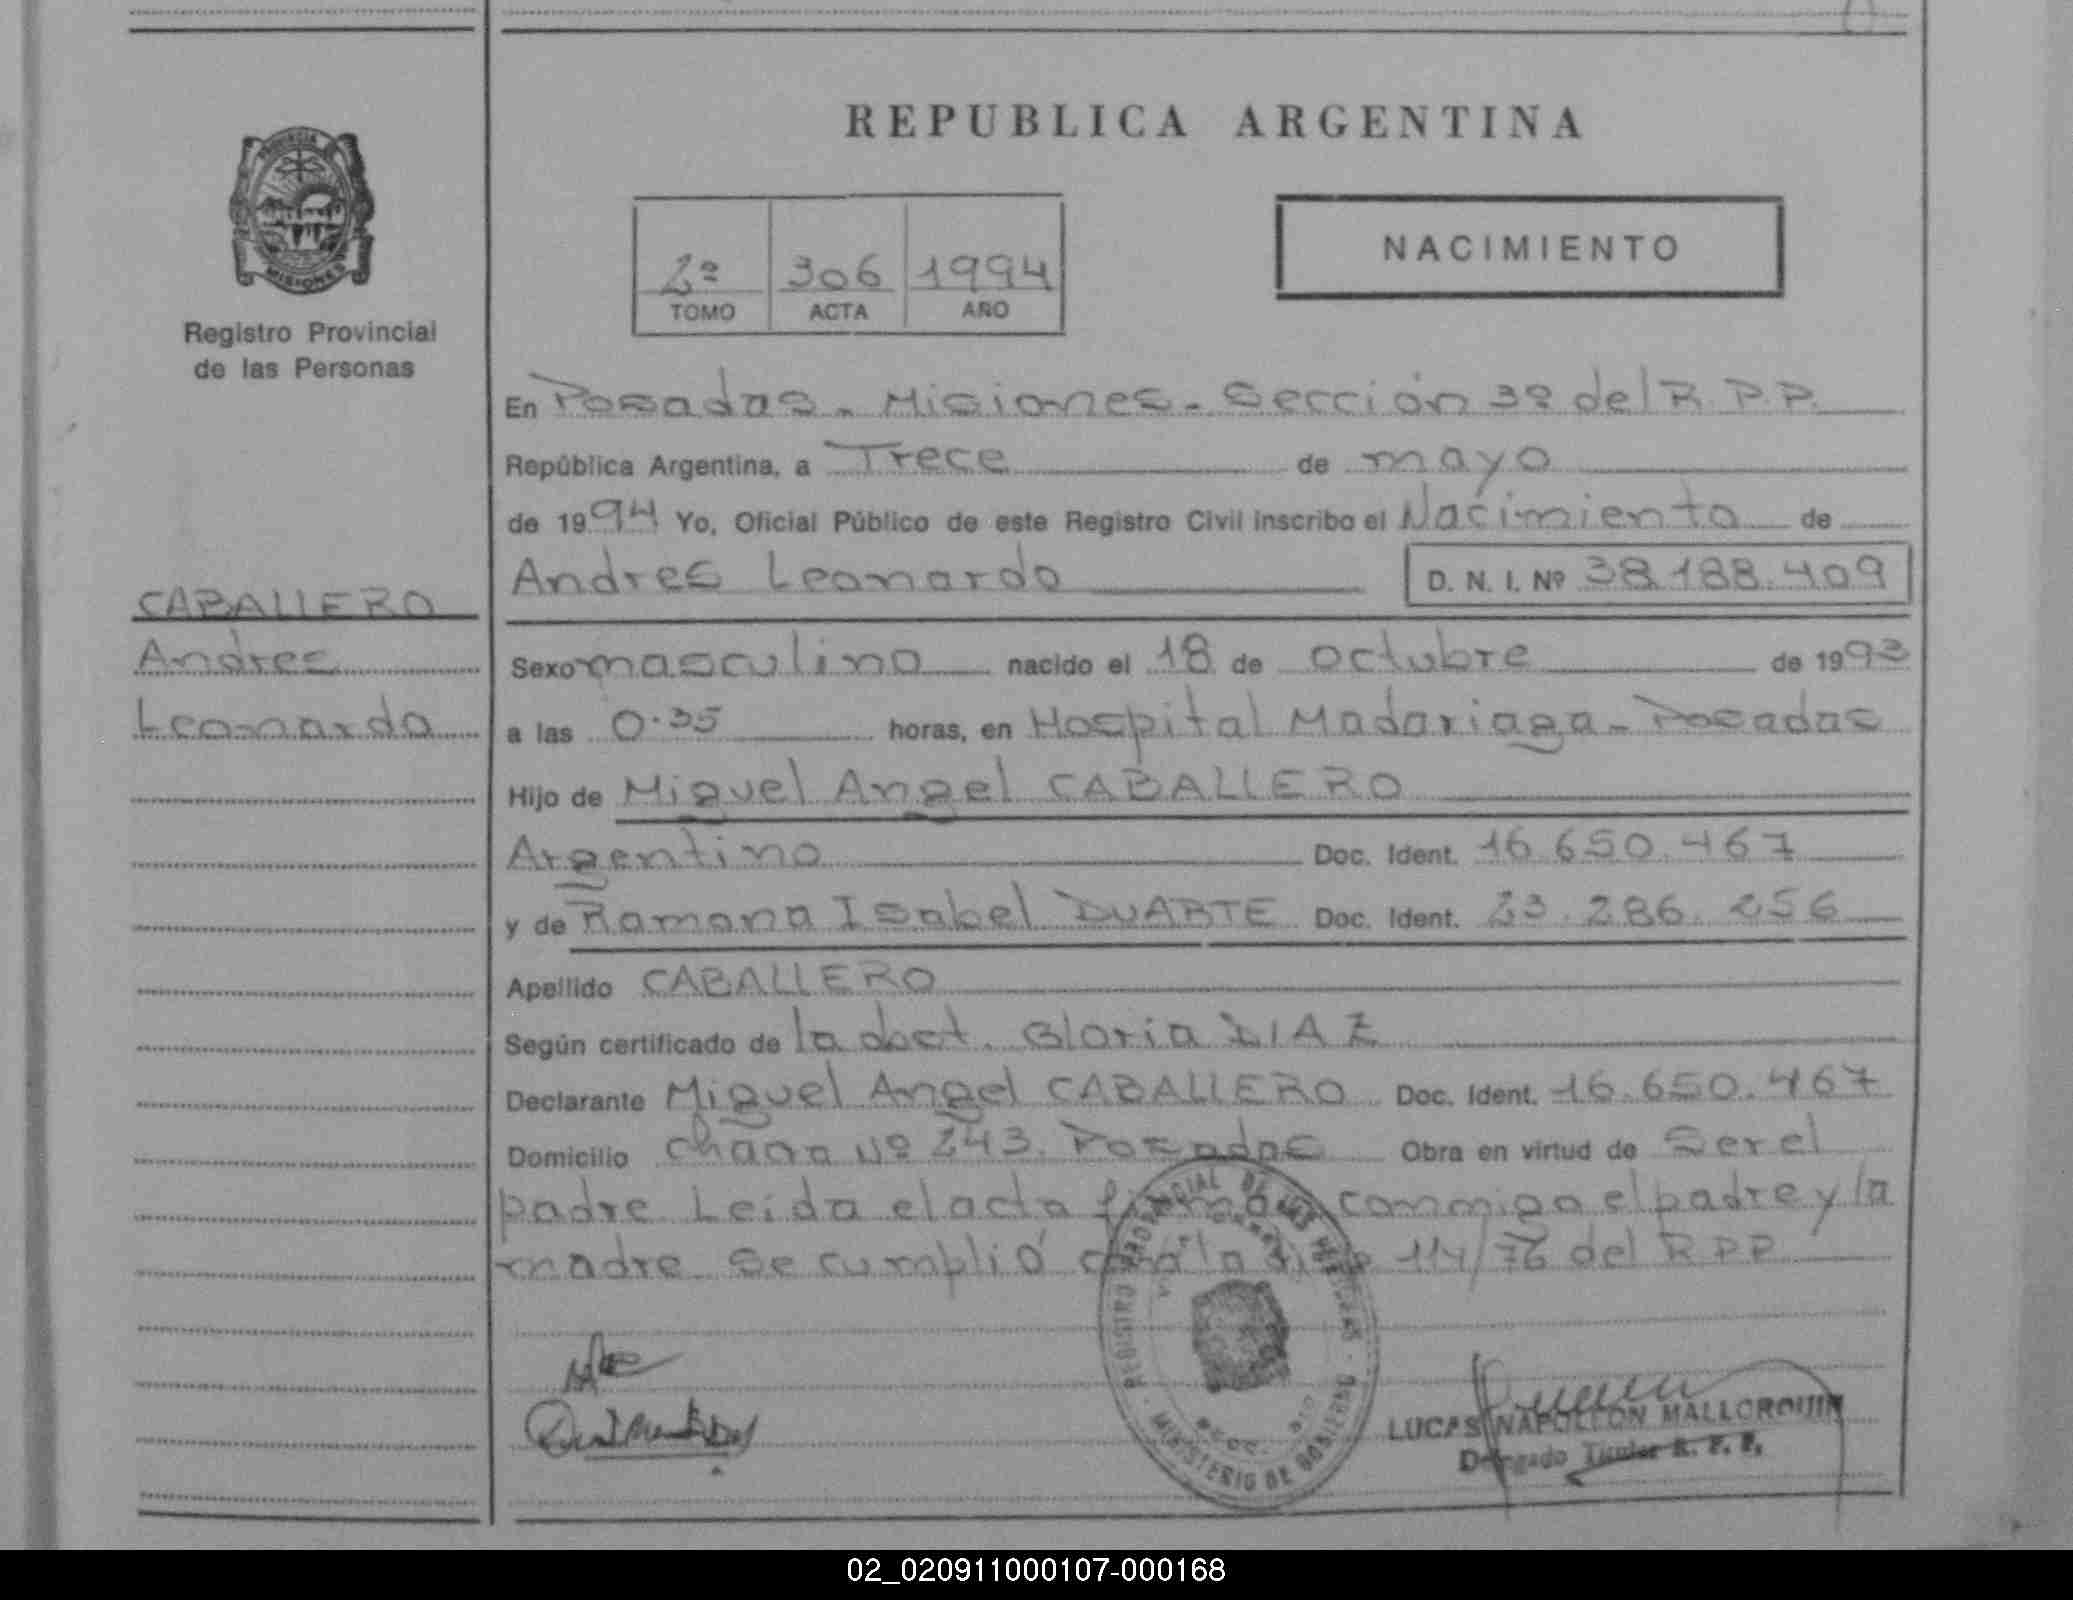 REPUBLICA ARGENTINA
PROVINCIA
MISIONES
Registro Provincial
de las Personas
2º 306 1994
TOMO ACTA AÑO
NACIMIENTO
En Posadas - Misiones - Sección 3º del R.P.P.
República Argentina, a Trece de mayo
de 1994 Yo, Oficial Público de este Registro Civil inscribo el Nacimiento de
Andres Leonardo D. N. I. Nº 38.188.409
CABALLERO
Andres
Leonardo
Sexo masculino nacido el 18 de octubre de 1993
a las 0.35 horas, en Hospital Madariaga - Posadas
Hijo de Miguel Angel CABALLERO
Argentino Doc. Ident. 16.650.467
y de Ramona Isabel DUARTE Doc. Ident. 23.286.256
Apellido CABALLERO
Según certificado de la doct. Gloria DIAZ
Declarante Miguel Angel CABALLERO Doc. Ident. 16.650.467
Domicilio Chacra Nº 243. Posadas Obra en virtud de Ser el
padre Leida el acta conmigo el padre y la
madre Se cumplió con la 114/76 del R.P.P.
REGISTRO PROVINCIAL DE LAS PERSONAS
MINISTERIO DE GOBIERNO
LUCAS NAPOLEON MALLORQUIN
Delegado Titular R. P. P.
02_020911000107-000168